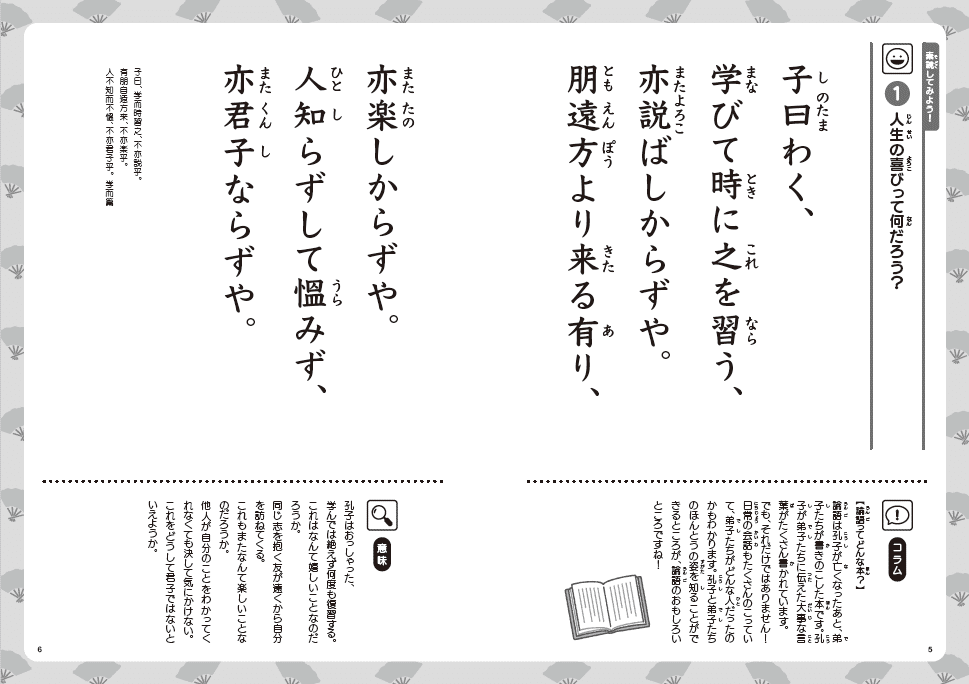 素読してみよう！
1 人生の喜びって何だろう？
子曰わく、
学びて時に之を習う、
亦説ばしからずや。
朋遠方より来る有り、
亦楽しからずや。
人知らずして慍みず、
亦君子ならずや。
子曰、学而時習之、不亦説乎。
有朋自遠方来、不亦楽乎。
人不知而不慍、不亦君子乎。 学而篇
コラム
【論語ってどんな本？】
論語は孔子が亡くなったあと、弟
子たちが書きのこした本です。孔
子が弟子たちに伝えた大事な言
葉がたくさん書かれています。
でも、それだけではありません！
日常の会話もたくさんのこってい
て、弟子たちがどんな人だったの
かもわかります。孔子と弟子たち
のほんとうの姿を知ることがで
きるところが、論語のおもしろい
ところですね！
5
意味
孔子はおっしゃった、
学んでは絶えず何度も復習する。
これはなんて嬉しいことなのだ
ろうか。
同じ志を抱く友が遠くから自分
を訪ねてくる。
これもまたなんて楽しいことな
のだろうか。
他人が自分のことをわかってく
れなくても決して気にかけない。
これをどうして君子ではないと
いえようか。
6